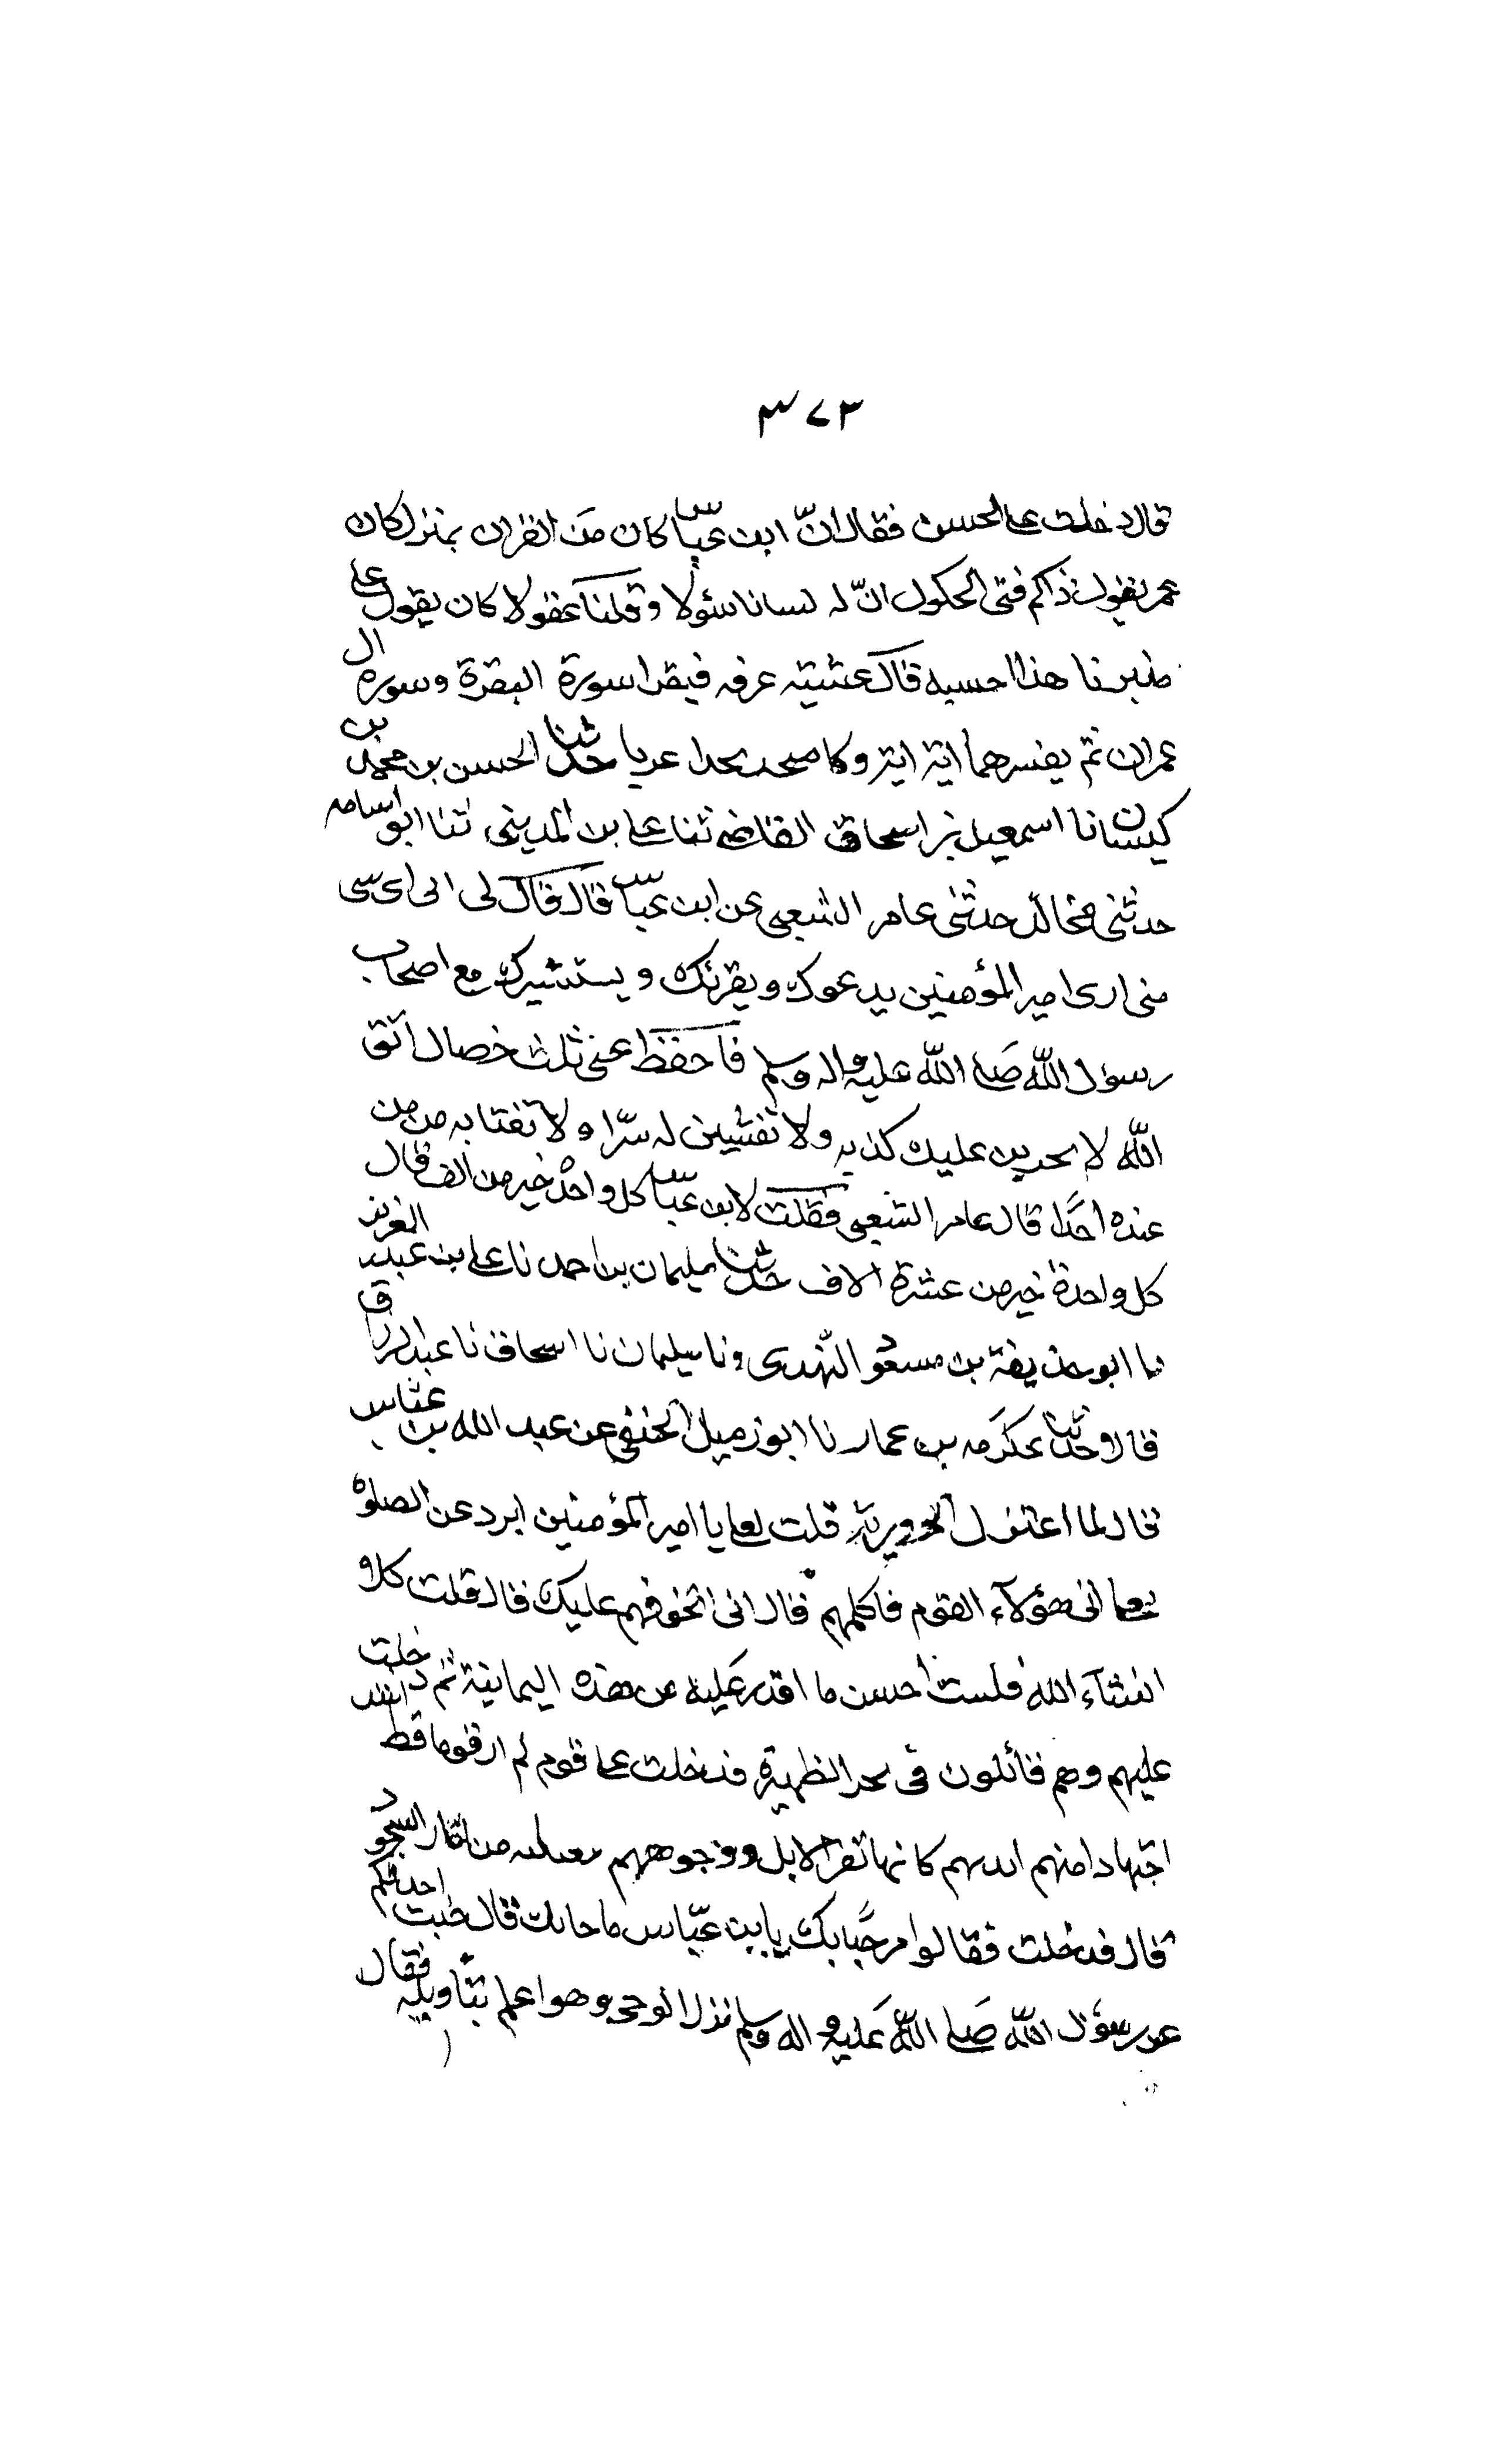 ٣٧٣
قال دخلت على الحسن فقال انّ ابن عبّاس كان من القران بمنزل كان
عمر يقول ذاكم فتى الكهول انّ له لسانا سئولا وقلبا عقولا كان يقول على
منبرنا هذا احسبه قال عشية عرفه فيقرا سورة البقرة وسوره ال
عمران ثم يفسرهما اية اية وكا عربا حدثنا الحسن بن محمد بن
كيسان نا اسمعيل بن اسحاق القاضى ثنا على بن المدينى ثنا ابو اسامه
حدثنى مجالد حدثنى عامر الشعبى عن ابن عبّاس قال قال لى ابى اى بنى
انى ارى امير المؤمنين يدعوك ويقربك ويستشيرك مع اصحاب
رسول الله صَلى الله عليه واله وسلم فاحفظ عنى ثلث خصال اتق
الله لا يجربن عليك كذبه ولا تفشين له سرّا ولا تغتابه من من
عنده احَدا قال عامر الشعبى فقلت لابن عبّاس كل واحدة خير من الف قال
كل واحدة خير من عشرة الاف حدثنا سليمان بن احمد نا على بن عبد العزيز
نا ابو حذيفة بن مسعود النهدى ونا سليمان نا اسحاق نا عبد الرزاق
قالا حدثنا عكرَمه بن عمار نا ابو زميل الحنفى عن عبد الله بن عبّاس
قال لما اعتزل الحرورية قلت لعلى يا امير المؤمنين ابرد عن الصلوة
لعلى اتى هؤلآء القوم فاكلمهم قال انى اتخوفهم عليك قال قلت كلا
انشآء الله فلبست احسن ما اقدر عَليه من هذه اليمانية ثم دخلت
عليهم وهم قائلون فى نحر الظهيرة فدخلت على قوم لم ار قوما قط اشد
اجتهادا منهم ايديهم كانها ثفن الابل ووجوههم من اثار السجود
قال فدخلت فقالوا مرحَبا بك يا بن عبّاس ما جاء بك قال جئت احدثكم
عن رسوَل الله صَلى الله عَليه واله وسلم نزل الوحى وهو اعلم بتاويله فقال